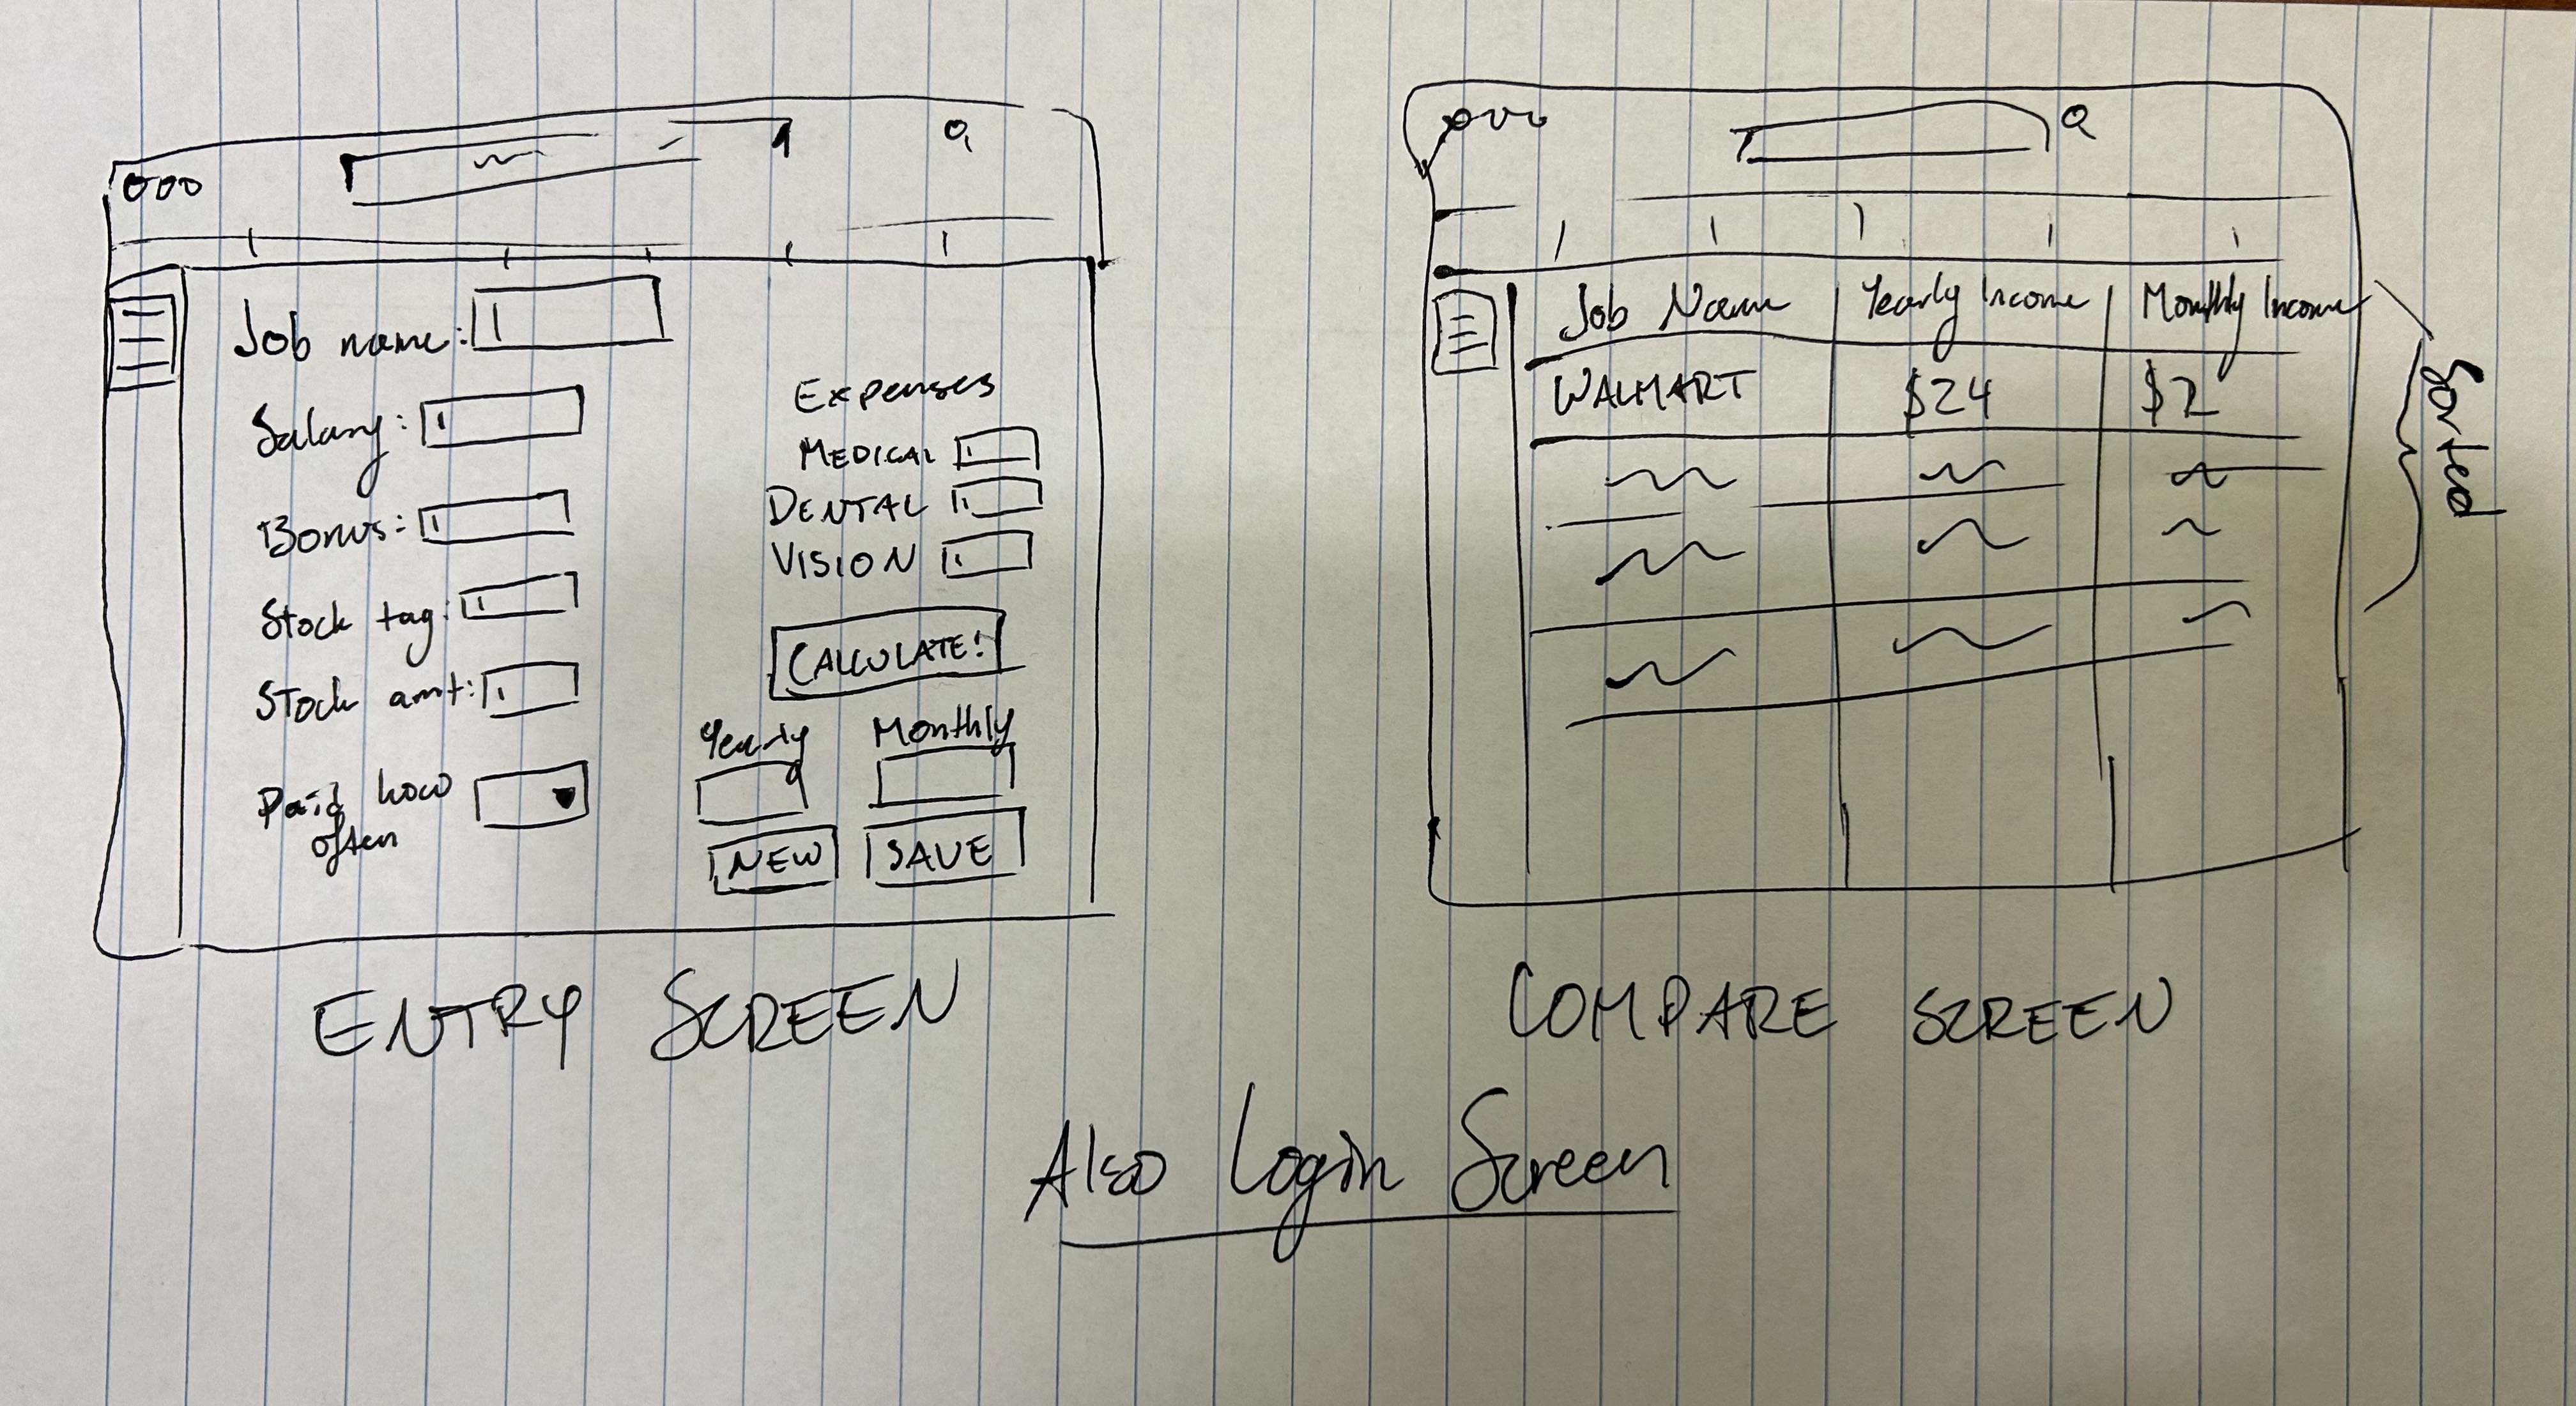 Job name:
Salary:
Bonus:
Stock tag:
Stock amt:
Paid how
often
Expenses
MEDICAL
DENTAL
VISION
CALCULATE!
Yearly Monthly
NEW SAVE
ENTRY SCREEN
Job Name Yearly Income Monthly Income
WALMART $24 $2
Sorted
COMPARE SCREEN
Also Login Screen